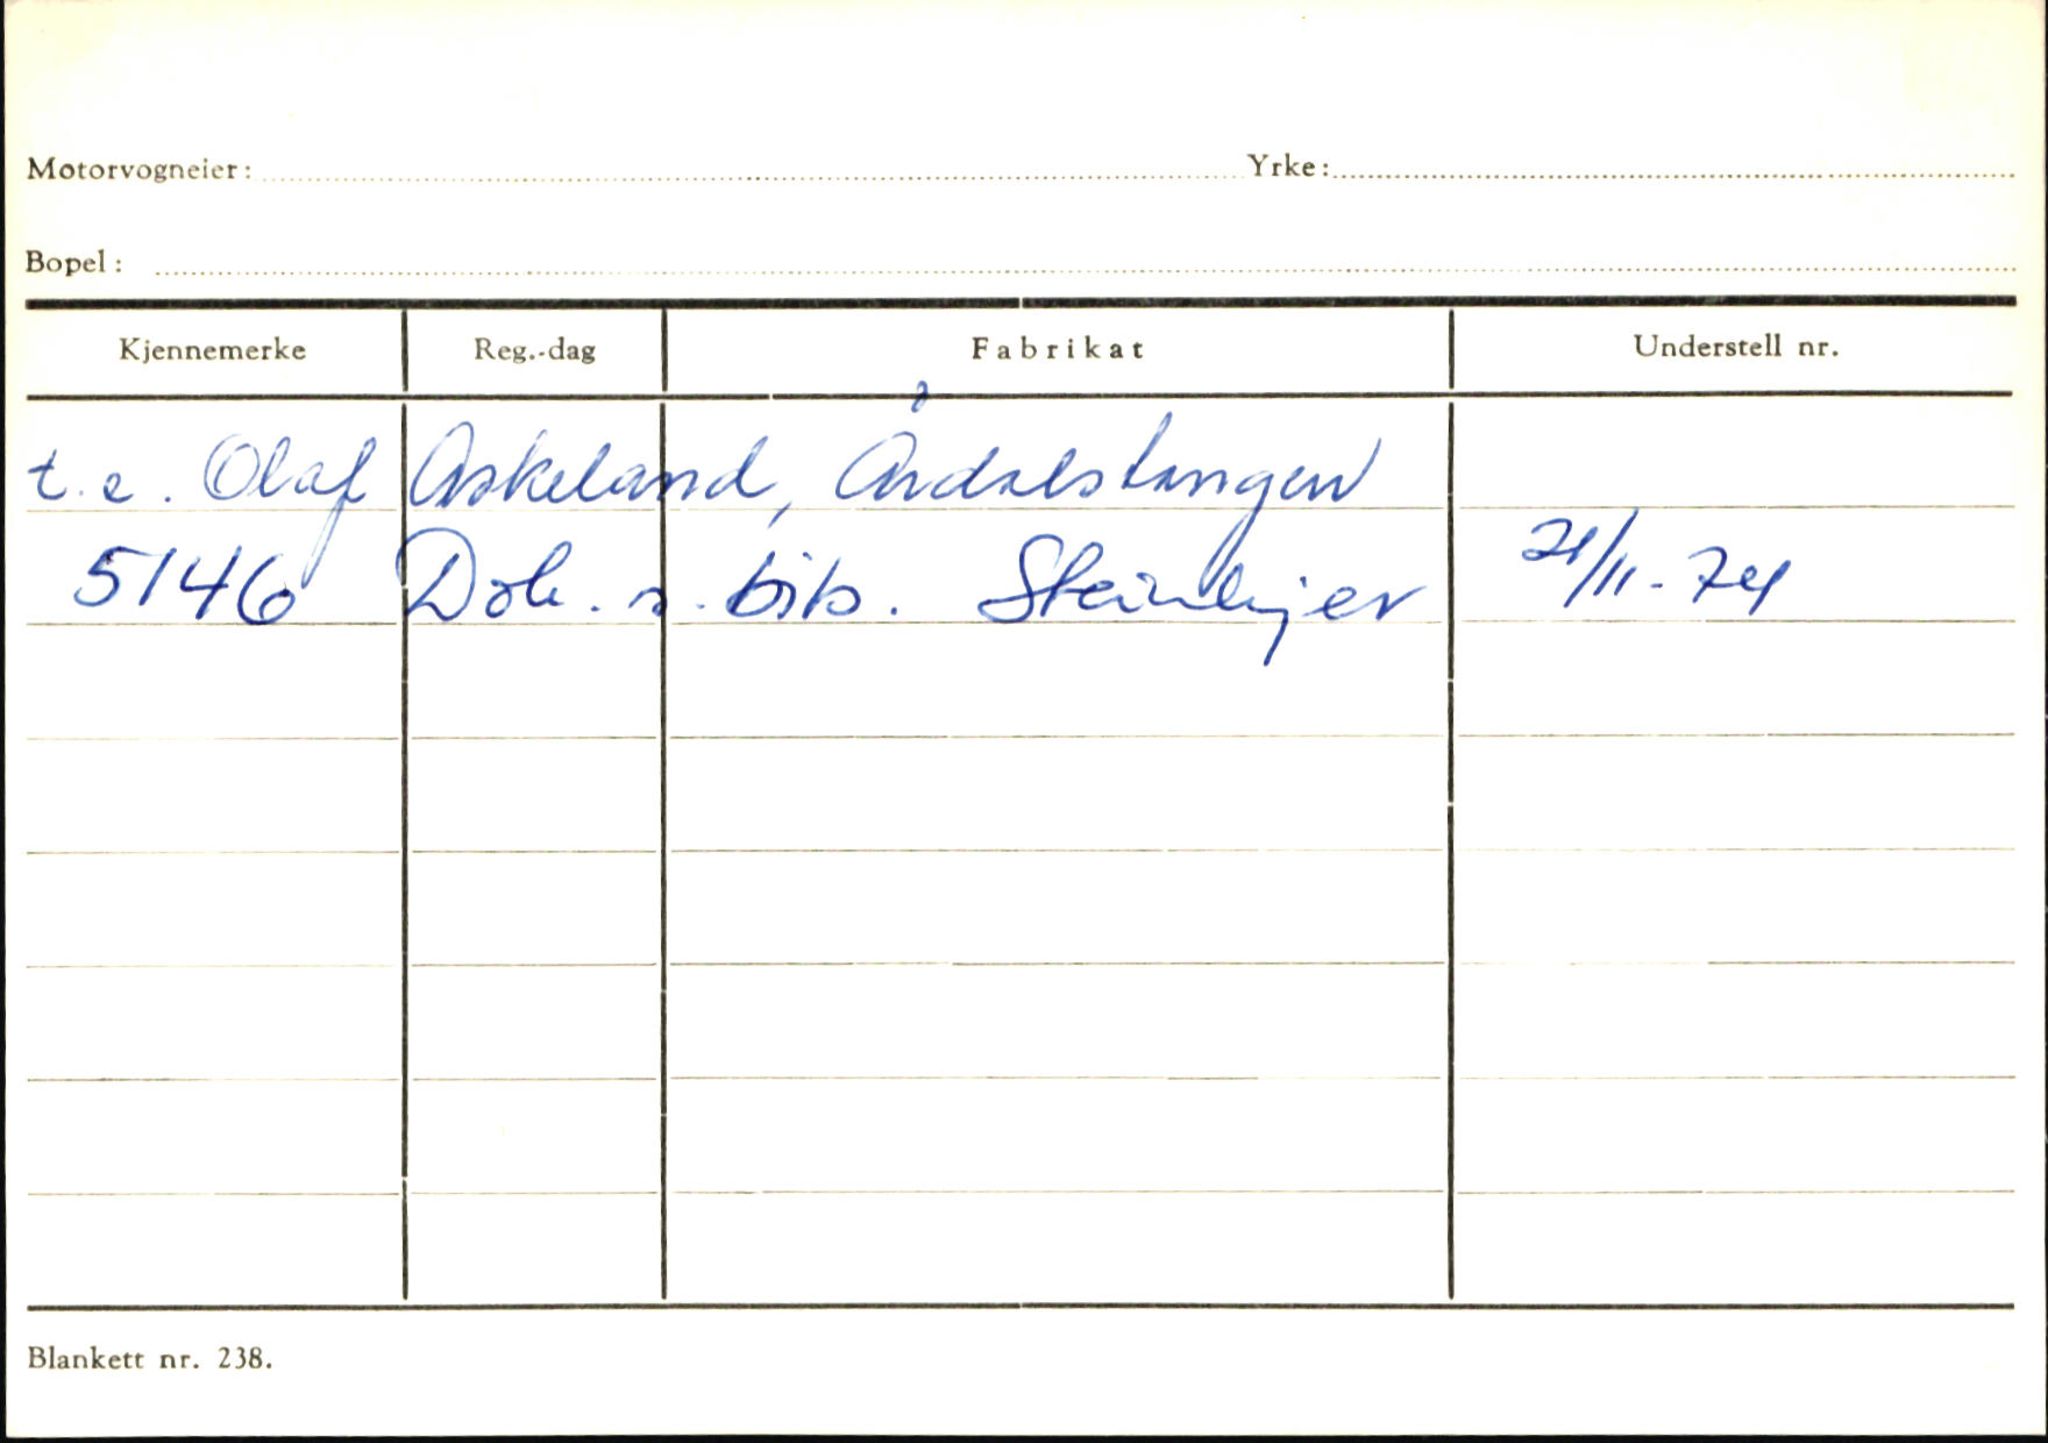 Motorvogneier: Yrke:
Bopel:
Kjennemerke Reg.-dag Fabrikat Understell nr.
t.e. Olaf Askeland, Årdalstangen
5146 Dok. s. bits. Steinkjer 21/11-74
Blankett nr. 238.